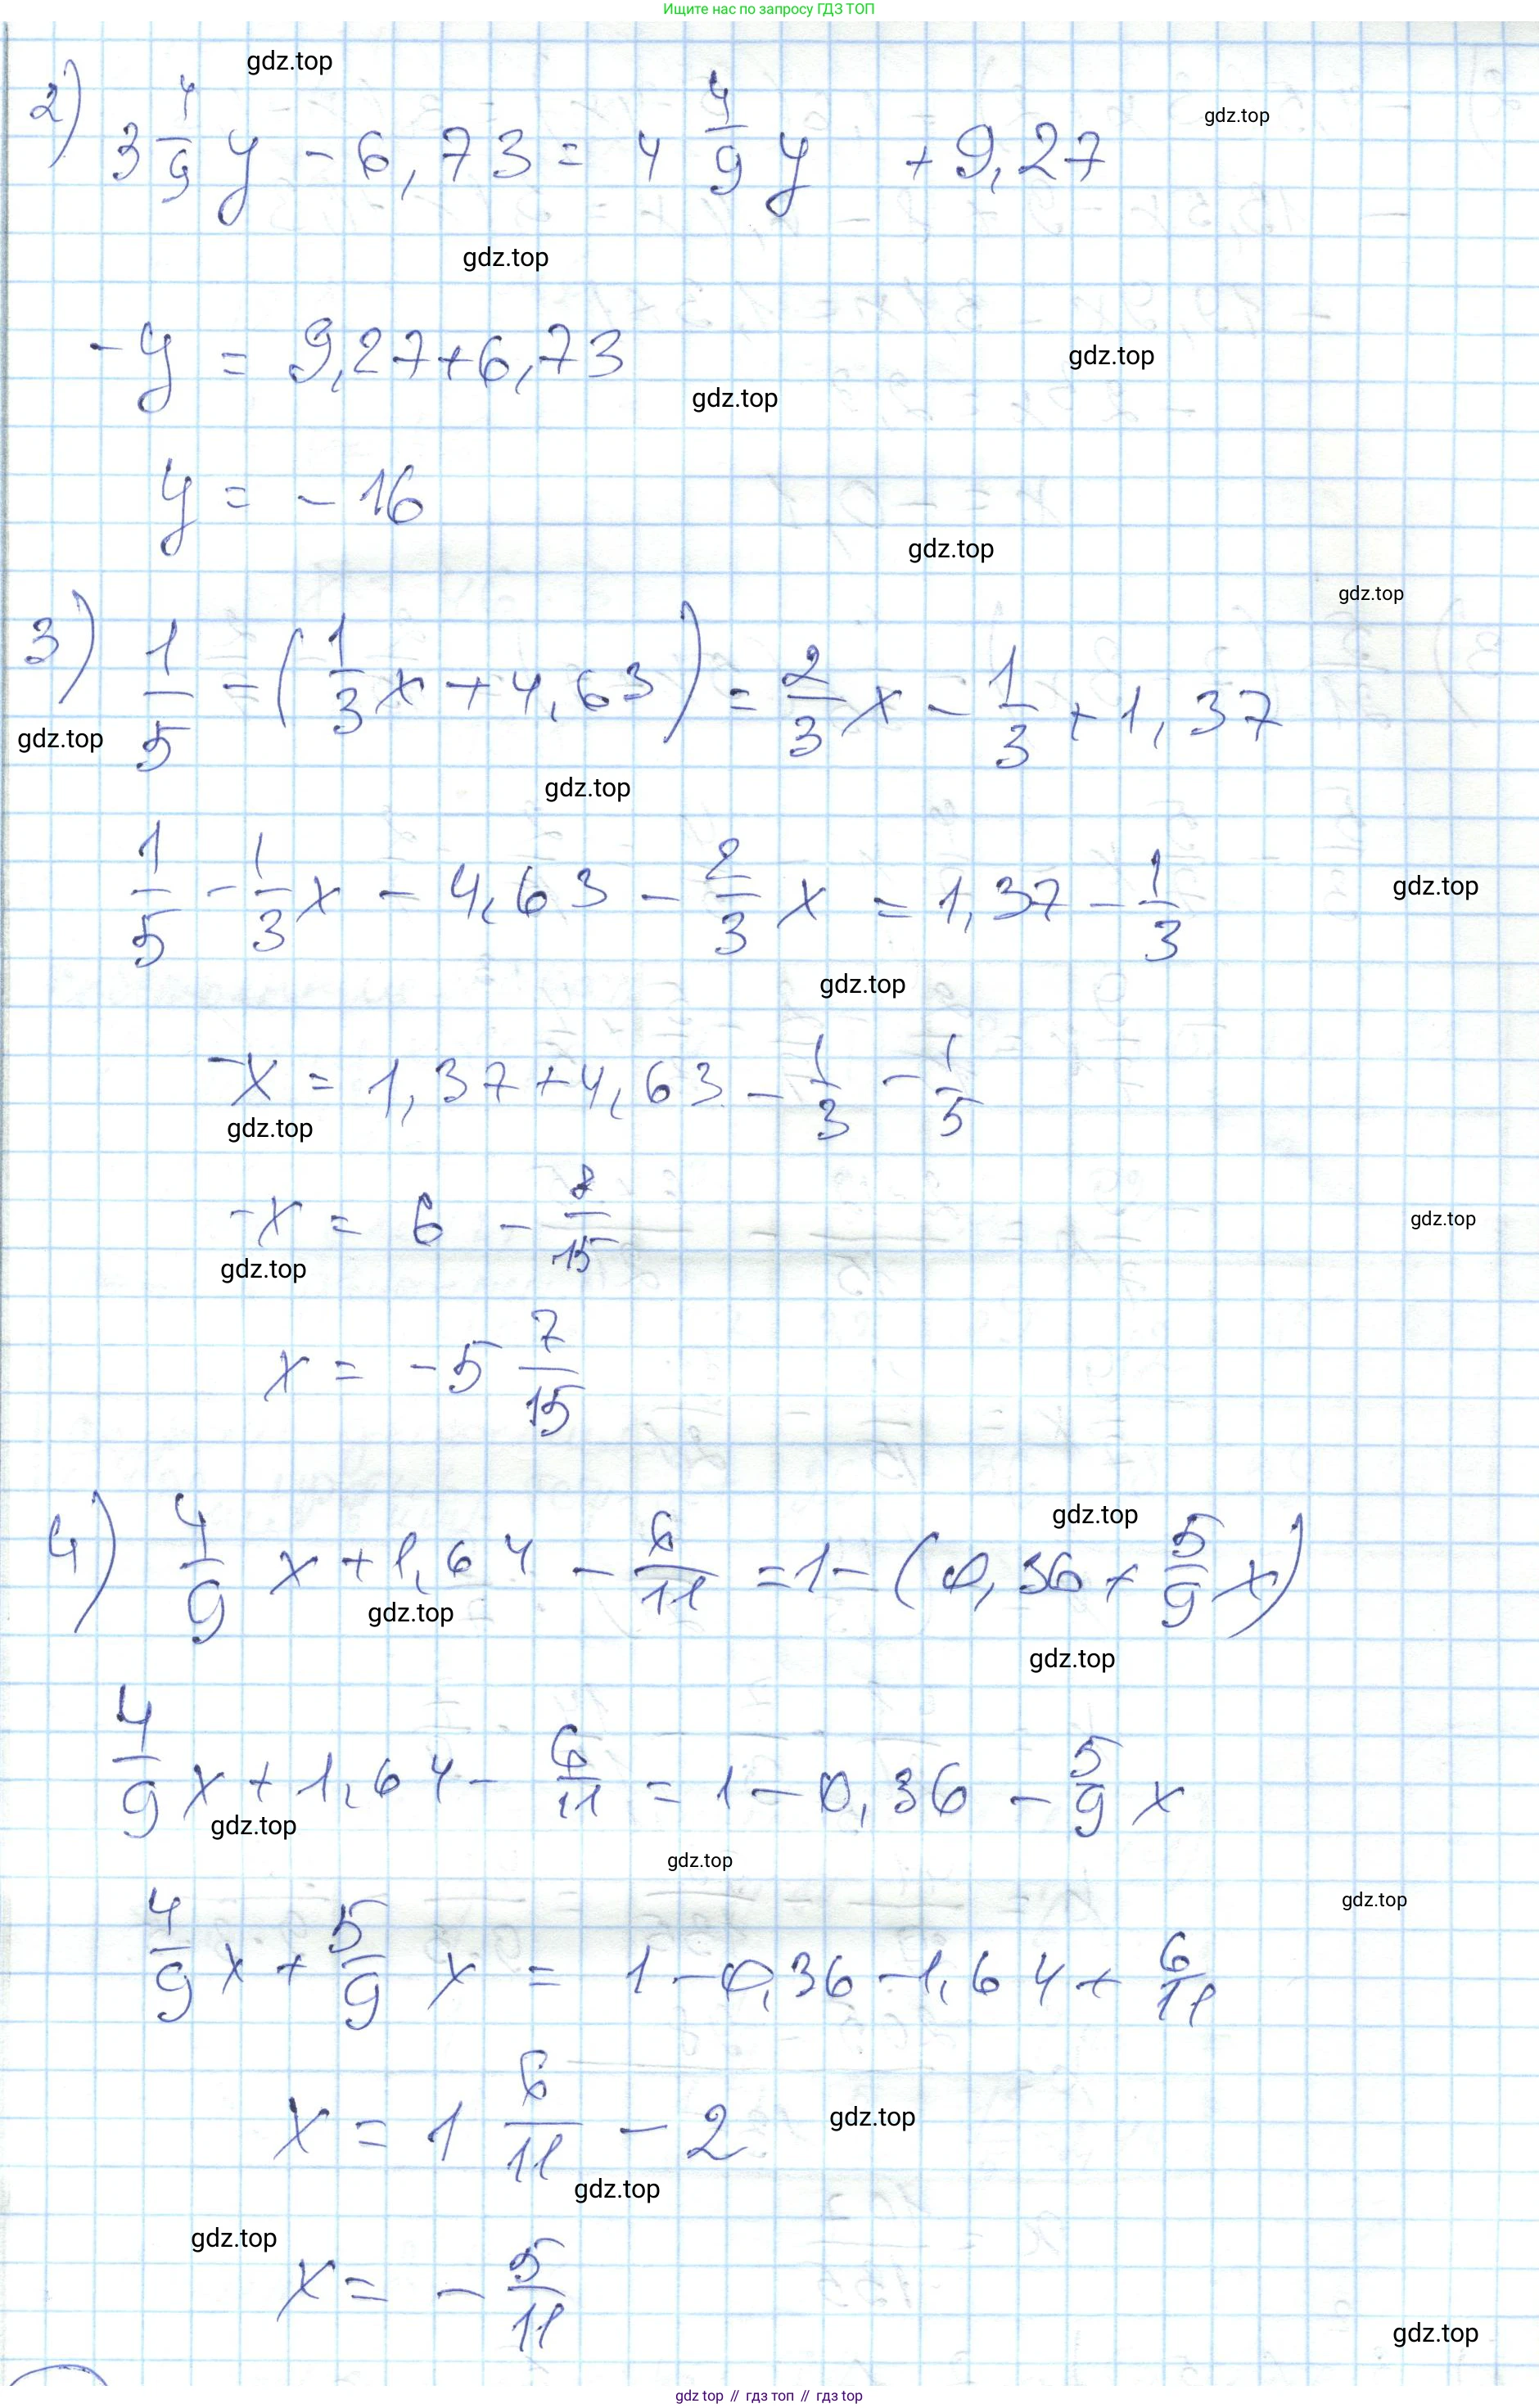 Ищите нас по запросу ГДЗ ТОП
gdz.top
2) 3 4/9 y - 6,73 = 4 4/9 y + 9,27
gdz.top
gdz.top
-y = 9,27+6,73
gdz.top
gdz.top
y = - 16
gdz.top
gdz.top
3) 1/5 - (1/3 x + 4,63) = 2/3 x - 1/3 + 1,37
gdz.top
gdz.top
1/5 - 1/3 x - 4,63 - 2/3 x = 1,37 - 1/3
gdz.top
gdz.top
-x = 1,37+4,63 - 1/3 - 1/5
gdz.top
-x = 6 - 8/15
gdz.top
gdz.top
x = -5 7/15
gdz.top
4) 4/9 x + 1,64 - 6/11 = 1 - (0,36 + 5/9 x)
gdz.top
gdz.top
4/9 x + 1,64 - 6/11 = 1 - 0,36 - 5/9 x
gdz.top
gdz.top
gdz.top
4/9 x + 5/9 x = 1 - 0,36 - 1,64 + 6/11
x = 1 6/11 - 2
gdz.top
gdz.top
gdz.top
x = - 5/11
gdz.top
gdz top // гдз топ // гдз top